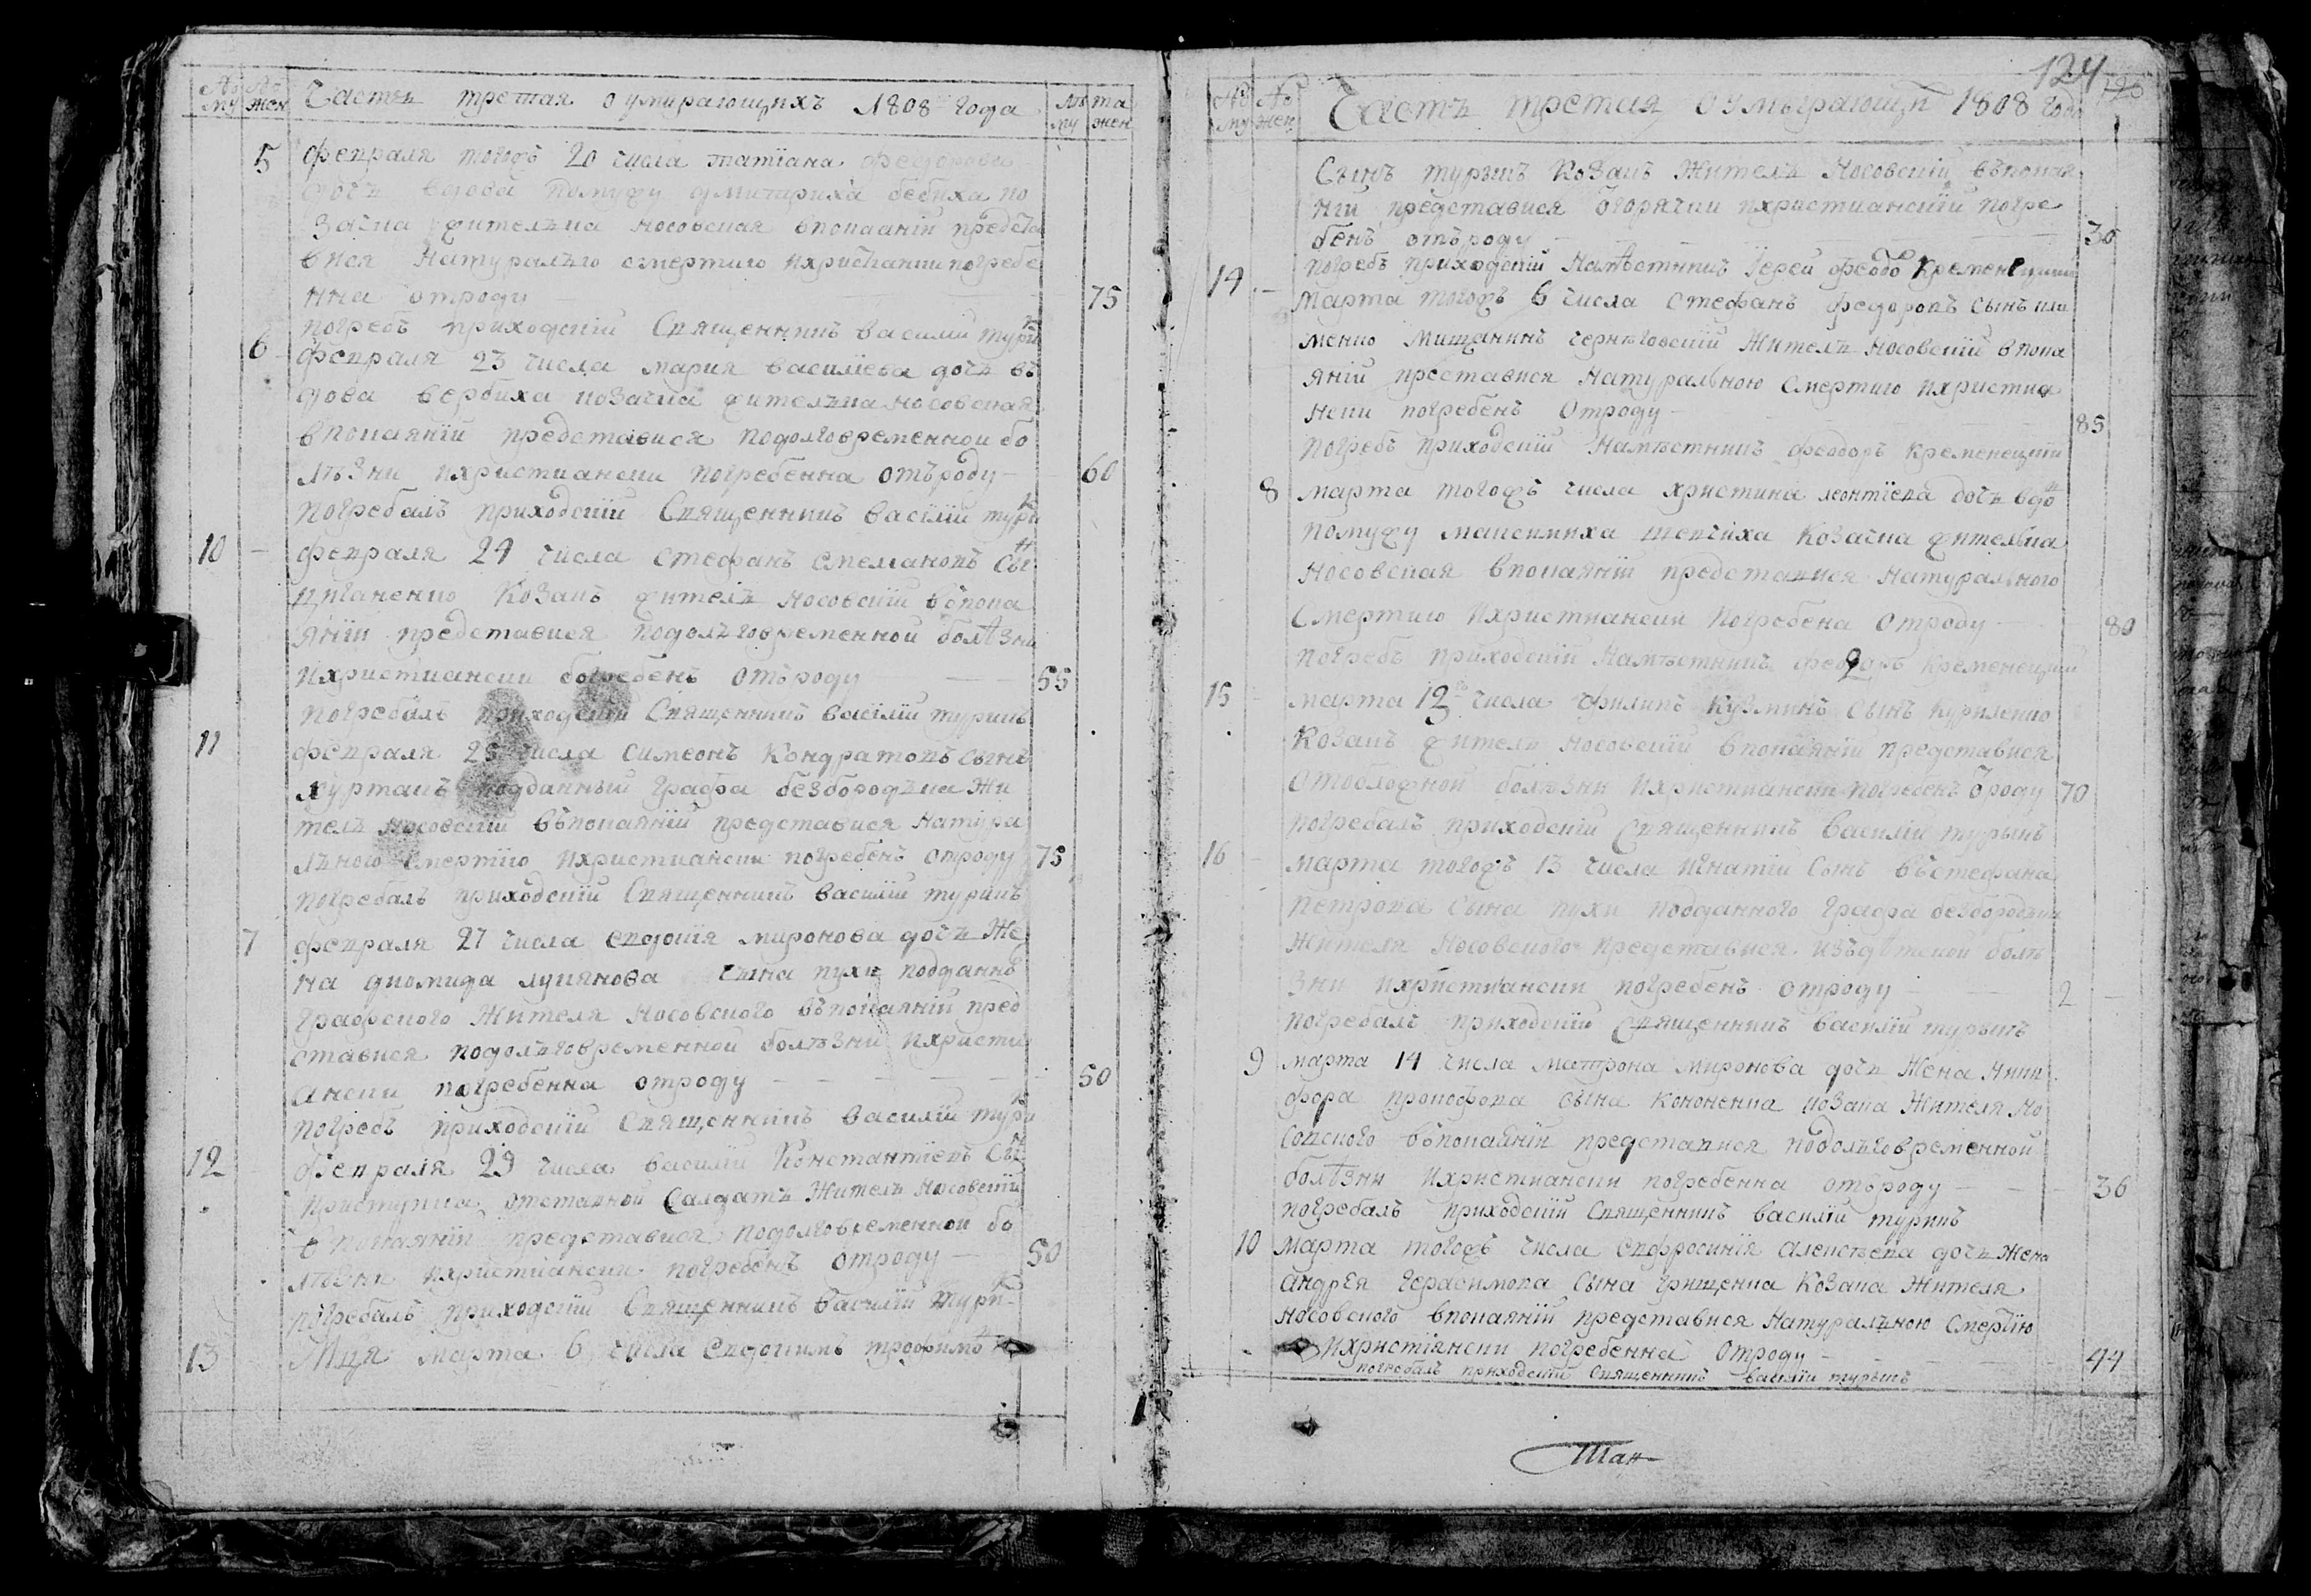 № му № жен Часть третая о умирающихъ 1808 года Лѣта му жен
5 февраля тогожъ 20 числа татїана федорова
дочъ вдова помужу дмитриха бебиха ко
зачка жителька носовская впокаанїи предста
вися Натуралъю смертию ихристиански погребе
нна отроду 75
погребъ приходскїй Священникъ василїй тури
6 февраля 23 числа мария василїева дочь въ
дова вербиха козачка жителька носовская
впокаянїи представися подолговременной бо
лѣзни ихристиански погребенна отъроду 60
погребалъ приходскїй Священникъ василїй тури
10 февраля 24 числа стефанъ емелиановъ сы
циганенко Козакъ житель носовскїй впока
янїи представися подолъговременной болѣзни
ихристиански погребенъ отъроду 55
погребалъ приходскїй Священникъ василїй турикъ
11 февраля 25 числа симеонъ Кондратовъ сынъ
журтакъ подданный графа безбородька Жи
тель носовскїй въпокаянїи представися натура
льного смертїю ихристиански погребенъ отроду 75
погребалъ приходскїй Священникъ василїй турикъ
7 февраля 27 числа евдокїя миронова дочь Же
на диомида лукянова сына пухи поддан
графского Жителя Носовского въпокаянїи пред
ставися подолъговременной болѣзни ихристи
ански погребенна отроду 50
погребъ приходскїй Священникъ василїй тури
12 февраля 29 числа василїй Константїевъ Сы
приступка отставной Салдатъ Житель Носовскїй
впокаянїи представися подолговременной бо
лѣзни ихристиански погребенъ отроду 50
погребалъ приходскїй Священникъ василїй тури
13 Мця марта 6 числа Евдокимъ трофимо
124
№ му № жен Часть третая оумырающи 1808 года
Сынъ турышъ Козакъ Житель Носовскїй въпокая
нїи представися огорячки ихристианскїй погре
бенъ отъроду 30
погребъ приходскїй Намѣстникъ Їерей феодо Кременецкий
14 марта тогожъ 6 числа стефанъ федоровъ сынъ кли
менко Мищанинъ черньговскїй Житель носовскїй впока
янїи преставися натуральною смертию ихристиа
нски погребенъ отроду 85
погребъ приходскїй Намѣстникъ феодоръ кременецкїй
8 марта тогожъ числа христина леонтїева дочь вдо
помужу максимиха шевчиха Козачка жителька
носовская впокаянїи представися натурального
смертию ихристиански погребена отроду 80
погребъ приходскїй намѣстникъ феодоръ кременецкий
15 марта 12 числа филипъ Кузминъ сынъ куриленко
Козакъ житель носовскїй впокаянїи представися
отобложной болѣзни ихристиански погребенъ ѿроду 70
погребалъ приходскїй Священникъ василїй турыкъ
16 марта тогожъ 13 числа игнатїй сынъ въстефана
петрова сына пухи подданного графа безбородьки
жителя носовского представися изъдѣтской болѣ
зни ихристиански погребенъ отроду 2
погребалъ приходскїй Священникъ василїй турыкъ
9 марта 14 числа матрона миронова дочь Жена Ники
фора прокофова сына кононенка козака Жителя но
совского въпокаянїи представися подолъговременной
болѣзни ихристиански погребенна отъроду 36
погребалъ приходскїй Священникъ василїй турикъ
10 марта тогожъ числа евфросинїя алексѣева дочь жена
андрея герасимова сына грищенка козака жителя
носовского впокаянїи представися натуралъною смертїю
ихристїянски погребенна отроду 44
погребалъ приходскїй священникъ василїй турыкъ